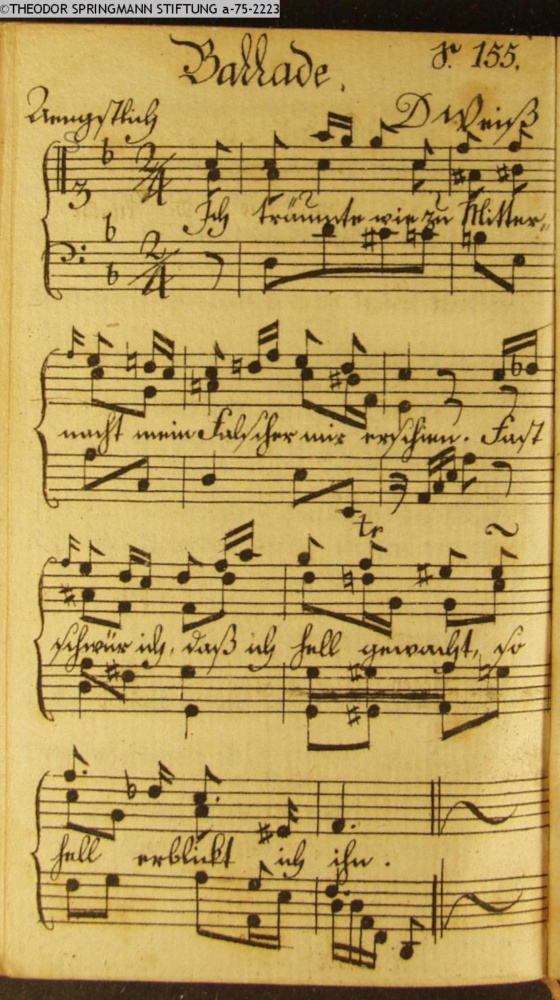 ©THEODOR SPRINGMANN STIFTUNG a-75-2223
Ballade. S. 155.
Aengstlich D Weiß
Ich träumte wie zu Mitter,,
nacht mein Falscher mir erschien. Fast
tr
schwür ich, daß ich hell gewacht, so
hell erblickt ich ihn.